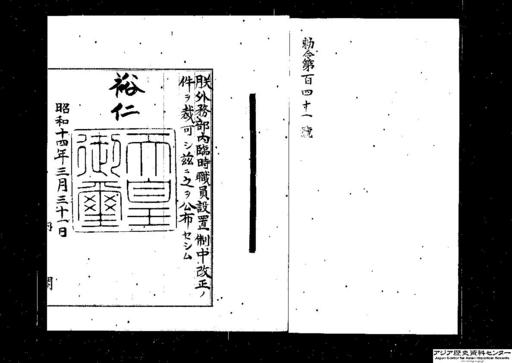 勅令第百四十一號
朕外務部內臨時職員設置制中改正ノ
件ヲ裁可シ茲ニ之ヲ公布セシム
裕仁
天皇
御璽
昭和十四年三月三十一日
アジア歴史資料センター
Japan Center for Asian Historical Records